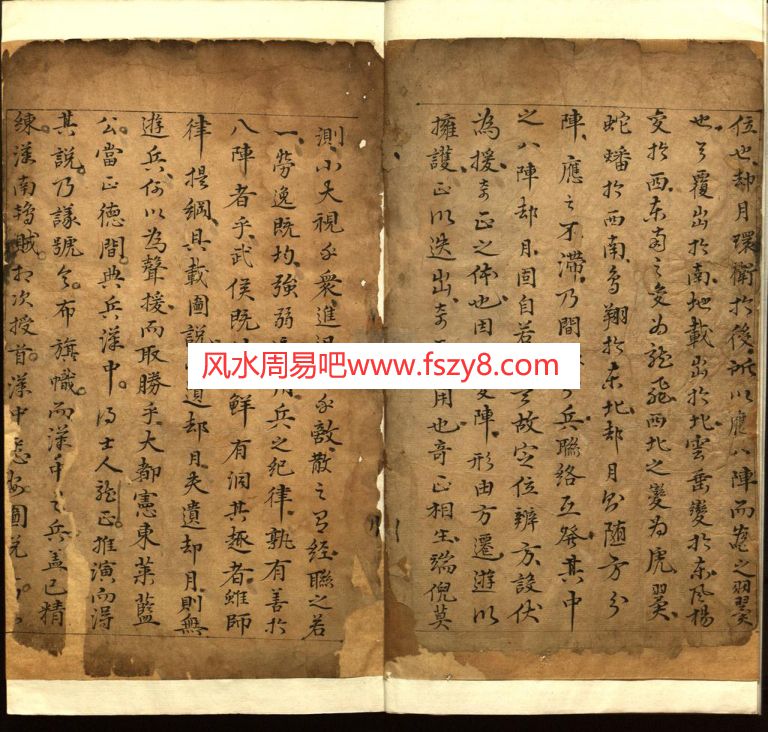 位也却月環衛於後所以應八陣而為之羽翼
也天覆出於南地載出於北雲垂變於东風揚
变於西东南之变为龍飛西北之變为虎翼
蛇蟠於西南鳥翔於东北却月則随方分
陣應之不滯乃間兵聯絡互發其中
之八陣却月固自若故定位辨方設伏
為援奇正之体也因变陣形由方遷遊以
擁護正以迭出奇用也奇正相生端倪莫
測小大視乎衆進退敵散之經聯之若
一勞逸既均強弱用兵之紀律孰有善於
八陣者乎武侯既鮮有洞其趣者雖師
律提綱具載圖說遺却月夫遺却月則無
遊兵何以為聲援而取勝乎大都憲東莱藍
公當正德間典兵漢中得士人龍正推演而得
其說乃謹號令布旗幟而漢中之兵盖已精
練漢南搗賊相次授首漢中圖
风水周易吧www.fszy8.com